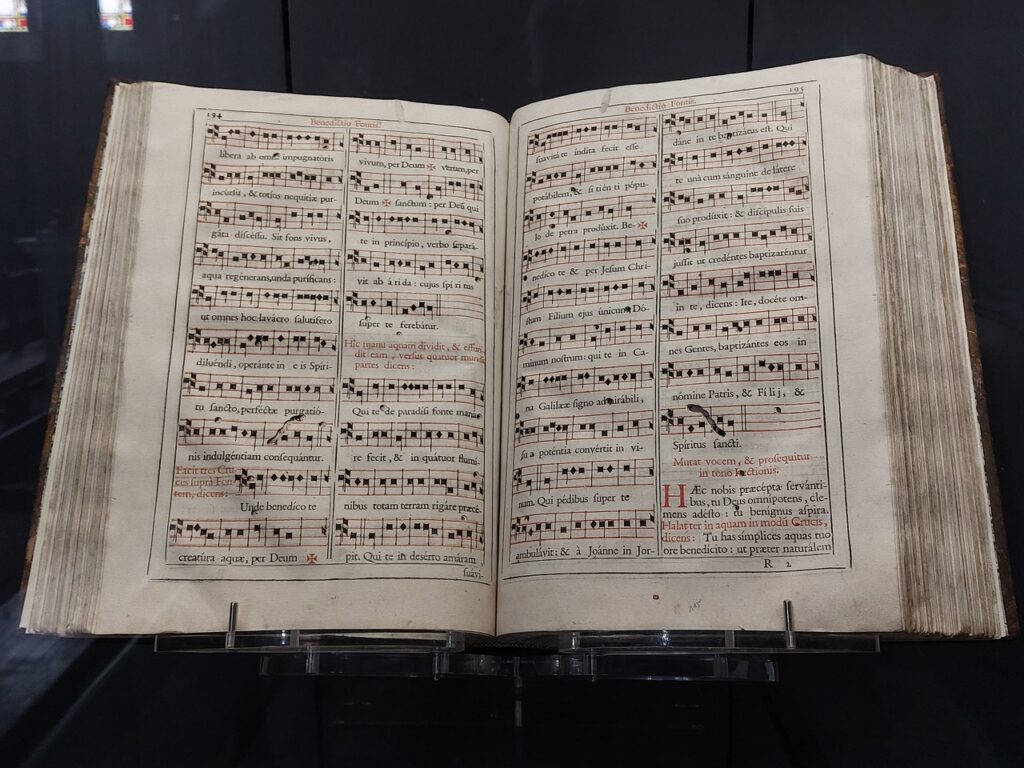 194
Benedictio Fontis.
libera ab omni impugnatóris
incúrsu, & totíus nequítiæ pur-
gáta discéssu. Sit fons vivus,
aqua regénerans, unda puríficans:
ut omnes hoc lavácro salutífero
dilúendi, operánte in eis Spíri-
tu sancto, perféctæ purgatió-
nis indulgéntiam consequántur.
Facit tres Cru-
ces suprà Fon-
tem, dicens:
Unde benedíco te
creatúra aquæ, per Deum ✠
vivum, per Deum ✠ verum, per
Deum ✠ sanctum: per Deũ qui
te in princípio, verbo separá-
vit ab árida: cujus spíritus
super te ferebátur.
Hîc manu aquam dividit, & effun-
dit eam, versus quatuor mundi
partes dicens:
Qui te de paradísi fonte maná-
re fecit, & in quátuor flumí-
nibus totam terram rigáre præcé-
pit. Qui te in desérto amáram
suávi-
195
Benedictio Fontis.
suavitáte índita fecit esse
potábilem, & sitiénti pópu-
lo de petra prodúxit. Be- ✠
nedíco te & per Jesum Chri-
stum Fílium ejus únicum Dó-
minum nostrum: qui te in Ca-
na Galilǽæ signo admirábili,
sua poténtia convértit in vi-
num. Qui pédibus super te
ambulávit: & à Joánne in Jor-
dáne in te baptizátus est. Qui
te unà cum sánguine de látere
suo prodúxit: & discípulis suis
jussit ut credéntes baptizaréntur
in te, dicens: Ite, docéte om-
nes Gentes, baptizántes eos in
nómine Patris, & Fílij, &
Spíritus sancti.
Mutat vocem, & prosequitur
in tono lectionis.
HÆc nobis præcépta servánti-
bus, tu Deus omnípotens, cle-
mens adésto: tu benígnus aspíra.
Halat ter in aquam in modũ Crucis,
dicens: Tu has símplices aquas tuo
ore benedícito: ut præter naturálem
R 2